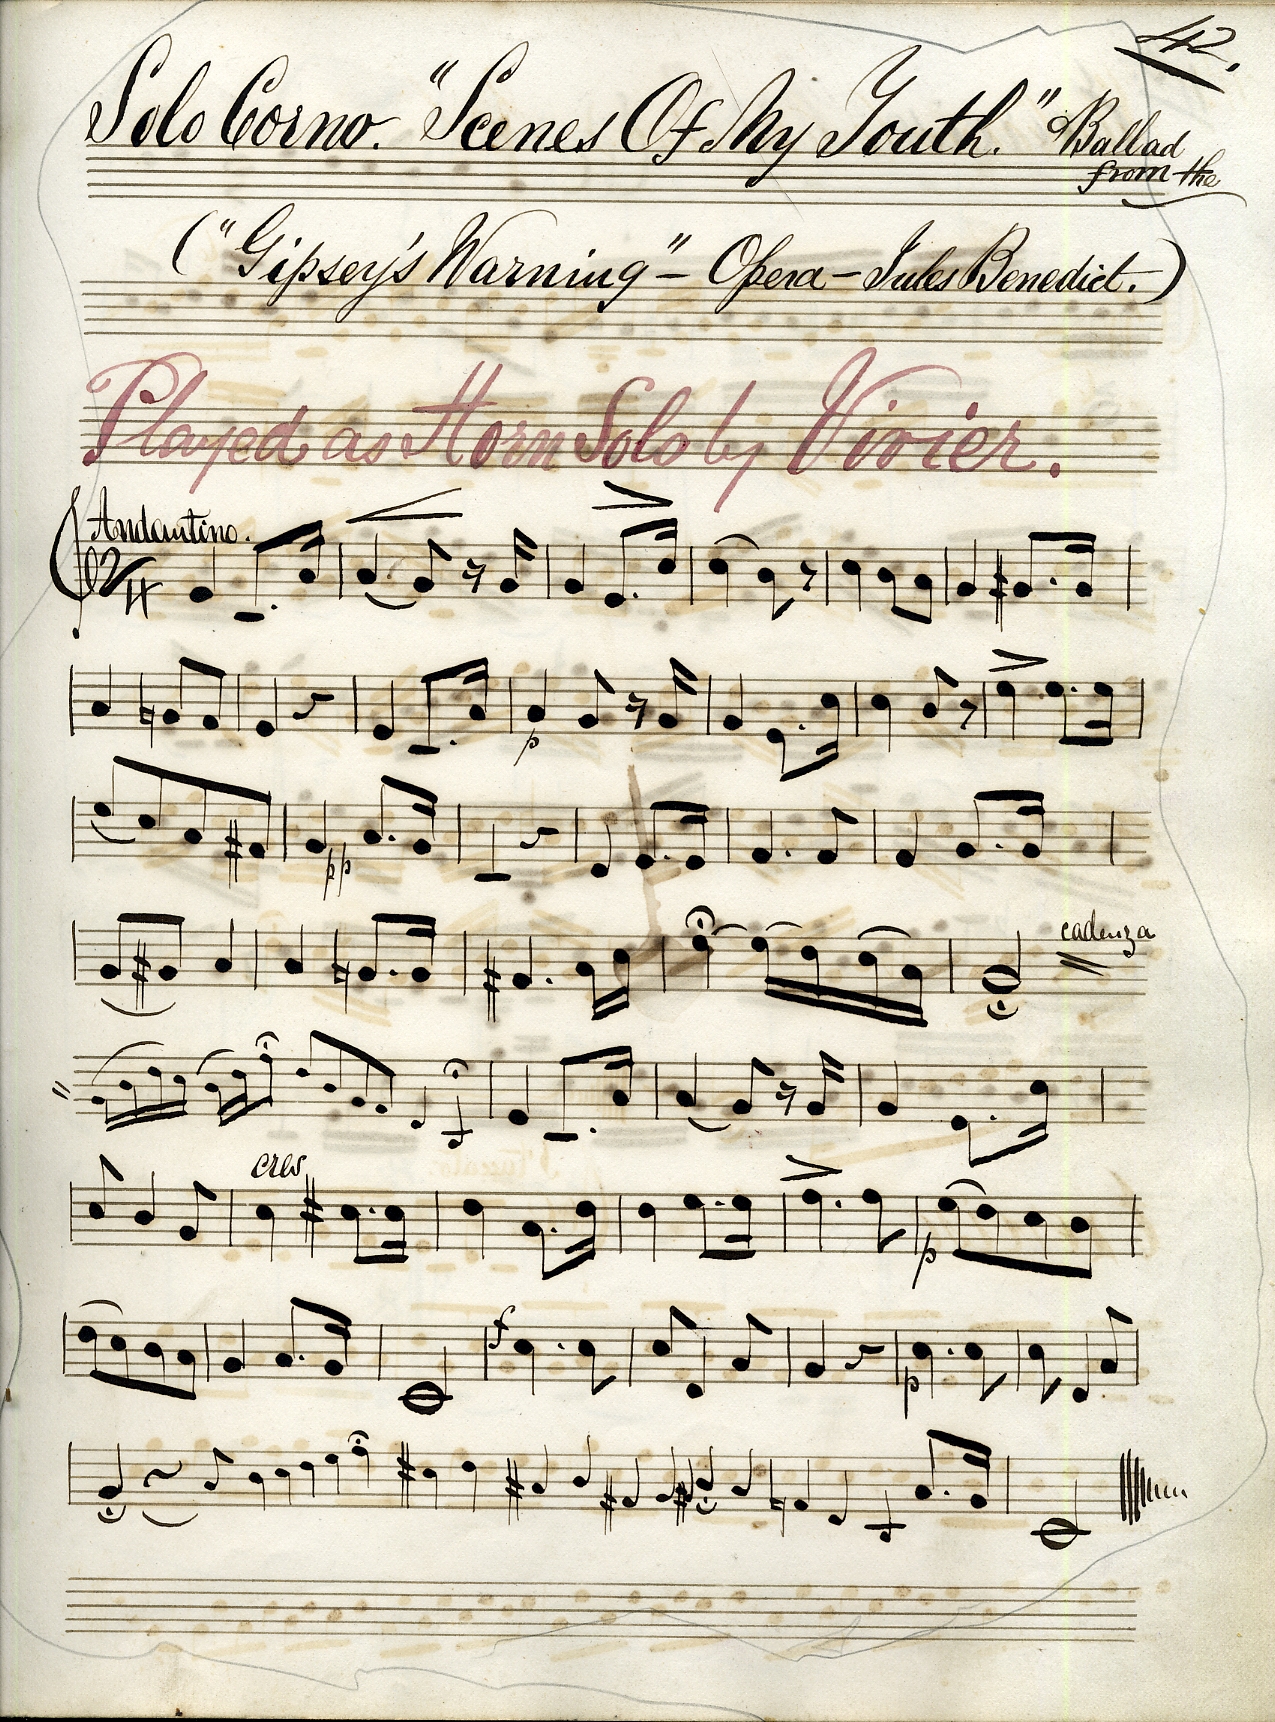 42.
Solo Corno. "Scenes Of My Youth." Ballad
from the
("Gipsey's Warning" - Opera - Jules Benedict.)
Played as Horn Solo by Vivier.
Andantino.
2/4
p
pp
cadenza
cres
p
f
p